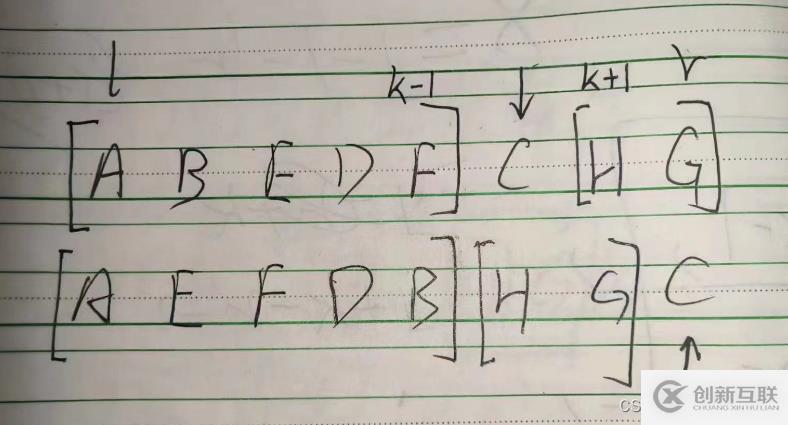 l k-1 ↓ k+1 r
[A B E D F] C [H G]
[A E F D B] [H G] C
↑
CS
创新互联
CHUANG XIN HU LIAN